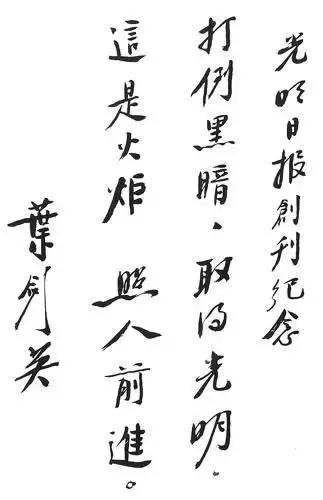 光明日报創刊纪念
打倒黑暗、取得光明.
這是火炬 照人前進。
葉劍英